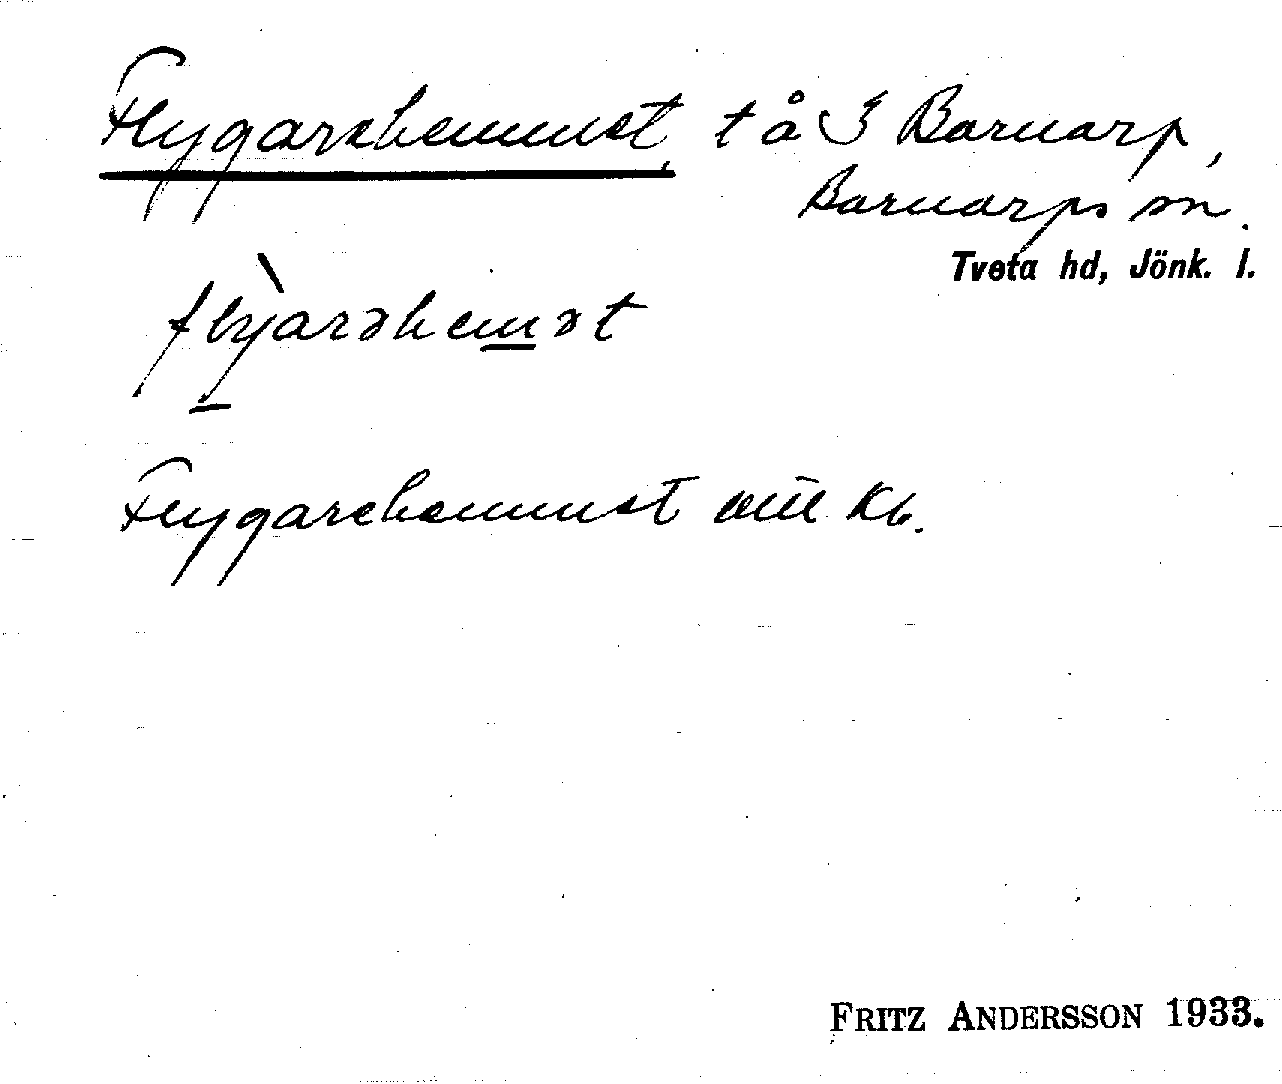 Flygarehemmet, t å 3 Barnarp,
Barnarps sn.
Tveta hd, Jönk. l.
flỳarəhemət
Flygarehemmet Kb.
FRITZ ANDERSSON 1933.